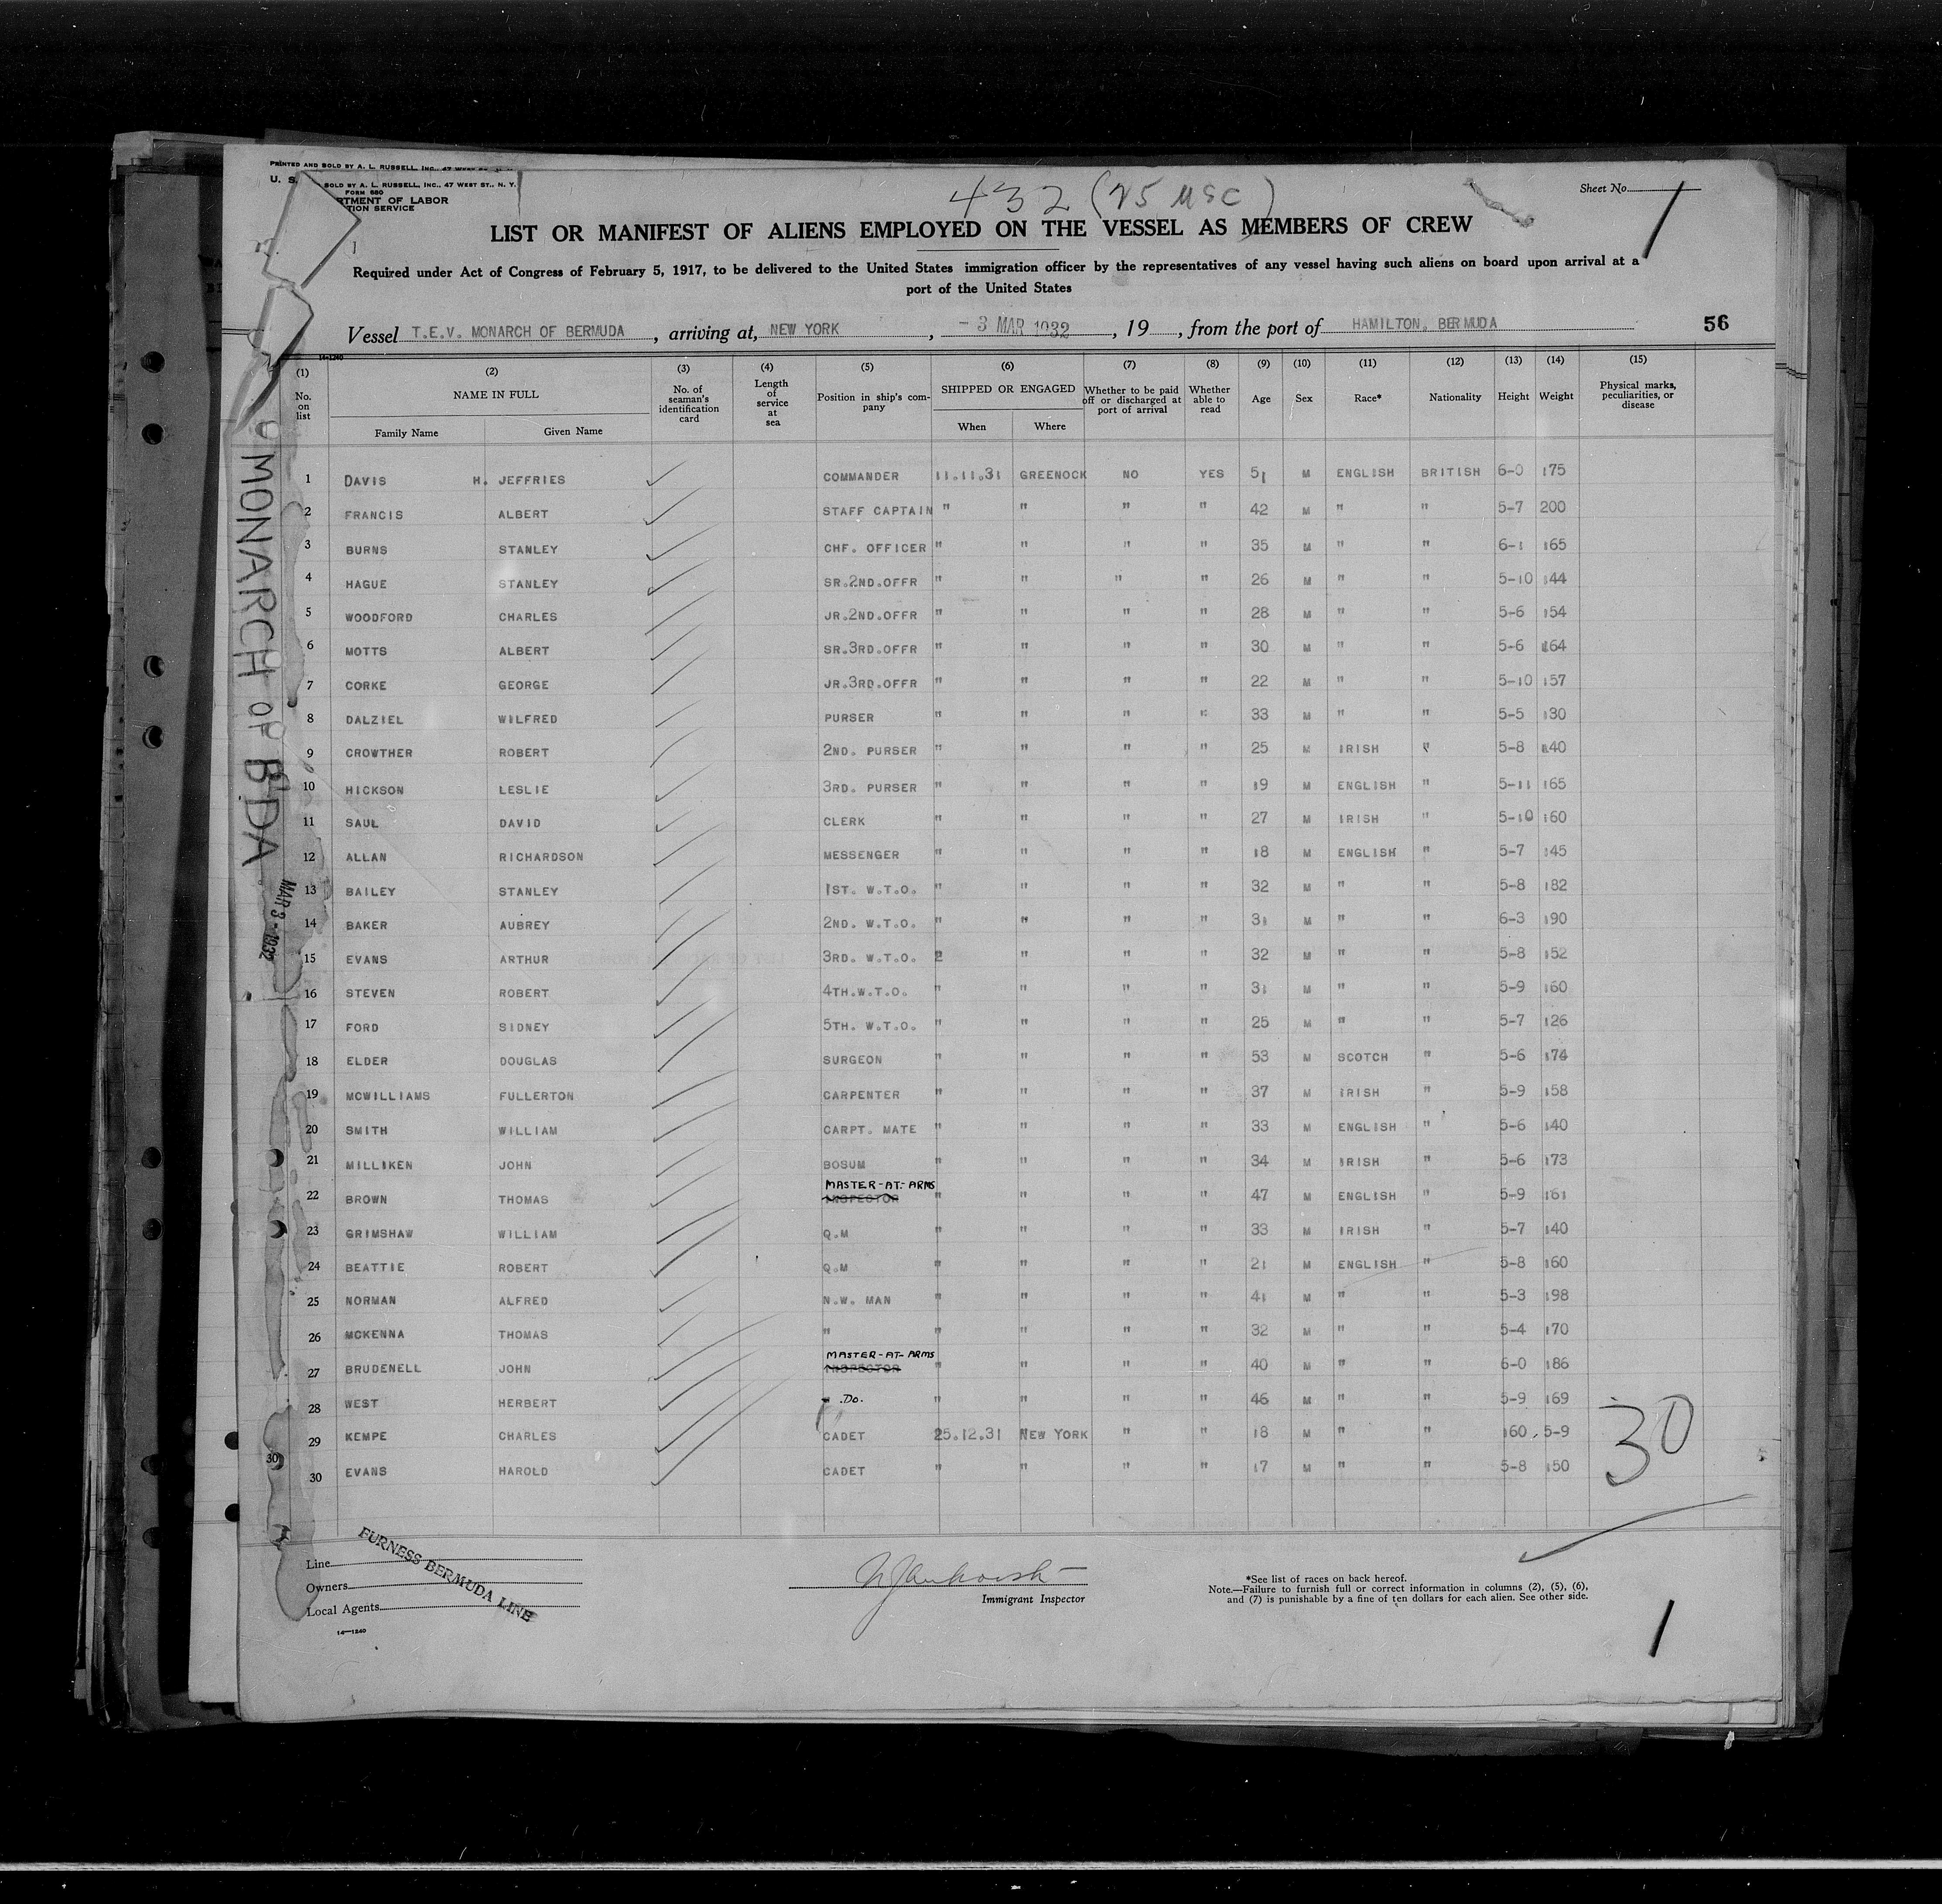 PRINTED AND SOLD BY A. L. RUSSELL, INC., 47 WEST
U. S.
SOLD BY A. L. RUSSELL, INC., 47 WEST ST., N. Y.
FORM 680
RTMENT OF LABOR
TION SERVICE
432 (25 MSC)
Sheet No. 1
LIST OR MANIFEST OF ALIENS EMPLOYED ON THE VESSEL AS MEMBERS OF CREW
Required under Act of Congress of February 5, 1917, to be delivered to the United States immigration officer by the representatives of any vessel having such aliens on board upon arrival at a
port of the United States
Vessel T.E.V. MONARCH OF BERMUDA, arriving at, NEW YORK, - 3 MAR 1932, 19, from the port of HAMILTON. BERMUDA 56
14-1240
(1) No. on list (2) NAME IN FULL Family Name Given Name (3) No. of seaman's identification card (4) Length of service at sea (5) Position in ship's company (6) SHIPPED OR ENGAGED When Where (7) Whether to be paid off or discharged at port of arrival (8) Whether able to read (9) Age (10) Sex (11) Race* (12) Nationality (13) Height (14) Weight (15) Physical marks, peculiarities, or disease
1 DAVIS H. JEFFRIES COMMANDER 11.11.31 GREENOCK NO YES 51 M ENGLISH BRITISH 6-0 175
2 FRANCIS ALBERT STAFF CAPTAIN " " " " 42 M " " 5-7 200
3 BURNS STANLEY CHF. OFFICER " " " " 35 M " " 6-1 165
4 HAGUE STANLEY SR.2ND.OFFR " " " " 26 M " " 5-10 144
5 WOODFORD CHARLES JR.2ND.OFFR " " " " 28 M " " 5-6 154
6 MOTTS ALBERT SR.3RD.OFFR " " " " 30 M " " 5-6 164
7 CORKE GEORGE JR.3RD.OFFR " " " " 22 M " " 5-10 157
8 DALZIEL WILFRED PURSER " " " " 33 M " " 5-5 130
9 CROWTHER ROBERT 2ND. PURSER " " " " 25 M IRISH " 5-8 140
10 HICKSON LESLIE 3RD. PURSER " " " " 19 M ENGLISH " 5-11 165
11 SAUL DAVID CLERK " " " " 27 M IRISH " 5-10 160
12 ALLAN RICHARDSON MESSENGER " " " " 18 M ENGLISH " 5-7 145
13 BAILEY STANLEY 1ST. W.T.O. " " " " 32 M " " 5-8 182
14 BAKER AUBREY 2ND. W.T.O. " " " " 31 M " " 6-3 190
15 EVANS ARTHUR 3RD. W.T.O. 2 " " " 32 M " " 5-8 152
16 STEVEN ROBERT 4TH.W.T.O. " " " " 31 M " " 5-9 160
17 FORD SIDNEY 5TH. W.T.O. " " " " 25 M " " 5-7 126
18 ELDER DOUGLAS SURGEON " " " " 53 M SCOTCH " 5-6 174
19 MCWILLIAMS FULLERTON CARPENTER " " " " 37 M IRISH " 5-9 158
20 SMITH WILLIAM CARPT. MATE " " " " 33 M ENGLISH " 5-6 140
21 MILLIKEN JOHN BOSUM " " " " 34 M IRISH " 5-6 173
22 BROWN THOMAS MASTER-AT-ARMS INSPECTOR " " " " 47 M ENGLISH " 5-9 161
23 GRIMSHAW WILLIAM Q.M " " " " 33 M IRISH " 5-7 140
24 BEATTIE ROBERT Q.M " " " " 21 M ENGLISH " 5-8 160
25 NORMAN ALFRED N.W. MAN " " " " 41 M " " 5-3 198
26 MCKENNA THOMAS " " " " " 32 M " " 5-4 170
27 BRUDENELL JOHN MASTER-AT-ARMS INSPECTOR " " " " 40 M " " 6-0 186
28 WEST HERBERT " Do. " " " " 46 M " " 5-9 169
29 KEMPE CHARLES CADET 25.12.31 NEW YORK " " 18 M " " 160 5-9
30 30 EVANS HAROLD CADET " " " " 17 M " " 5-8 150
30
MONARCH OF B'DA
MAR 3 - 1932
Line
Owners
Local Agents
FURNESS BERMUDA LINE
14-1240
Immigrant Inspector
*See list of races on back hereof.
Note.—Failure to furnish full or correct information in columns (2), (5), (6),
and (7) is punishable by a fine of ten dollars for each alien. See other side.
1